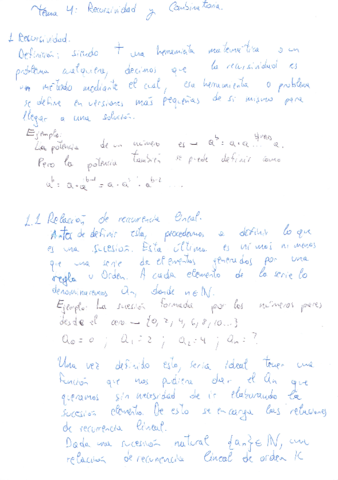 Tema 4: Recursividad y Combinatoria.
1. Recursividad.
Definición: siendo t una herramienta matemática o un
problema cualquiera, decimos que la recursividad es
un método mediante el cual, esa herramienta o problema
se define en versiones más pequeñas de si mismo para
llegar a una solución.
Ejemplo:
La potencia de un número es → a^b = a·a ... a.
Pero la potencia también se puede definir como
a^b = a·a^b-1 = a·a·a^b-2 ...
1.1 Relación de recurrencia lineal.
Antes de definir esta, procedemos a definir lo que
es una sucesión. Esta última es ni más ni menos
que una serie de elementos generados por una
regla u Orden. A cada elemento de la serie lo
denominaremos an, donde n∈ℕ.
Ejemplo: La sucesión formada por los números pares
desde el cero → {0, 2, 4, 6, 8, 10...}
a0 = 0 ; a1 = 2 ; a2 = 4 ; an = ?
Una vez definido esto, seria ideal tener una
función que nos pudiera dar el an que
queramos sin necesidad de ir elaborando la
sucesión elemento. De esto se encarga las relaciones
de recurrencia lineal.
Dada una sucesión natural {an}∈ℕ, una
relación de recurrencia lineal de orden K